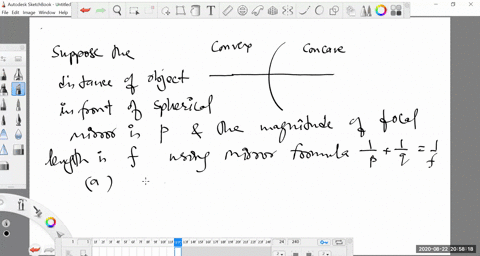 Autodesk SketchBook - Untitled
Suppose the
distance of object
in front of spherical
mirror is p & the magnitude of focal
length is f using mirror formula 1/p + 1/q = 1/f
(a)
Convex
Concave
2020-08-22 20:58:18